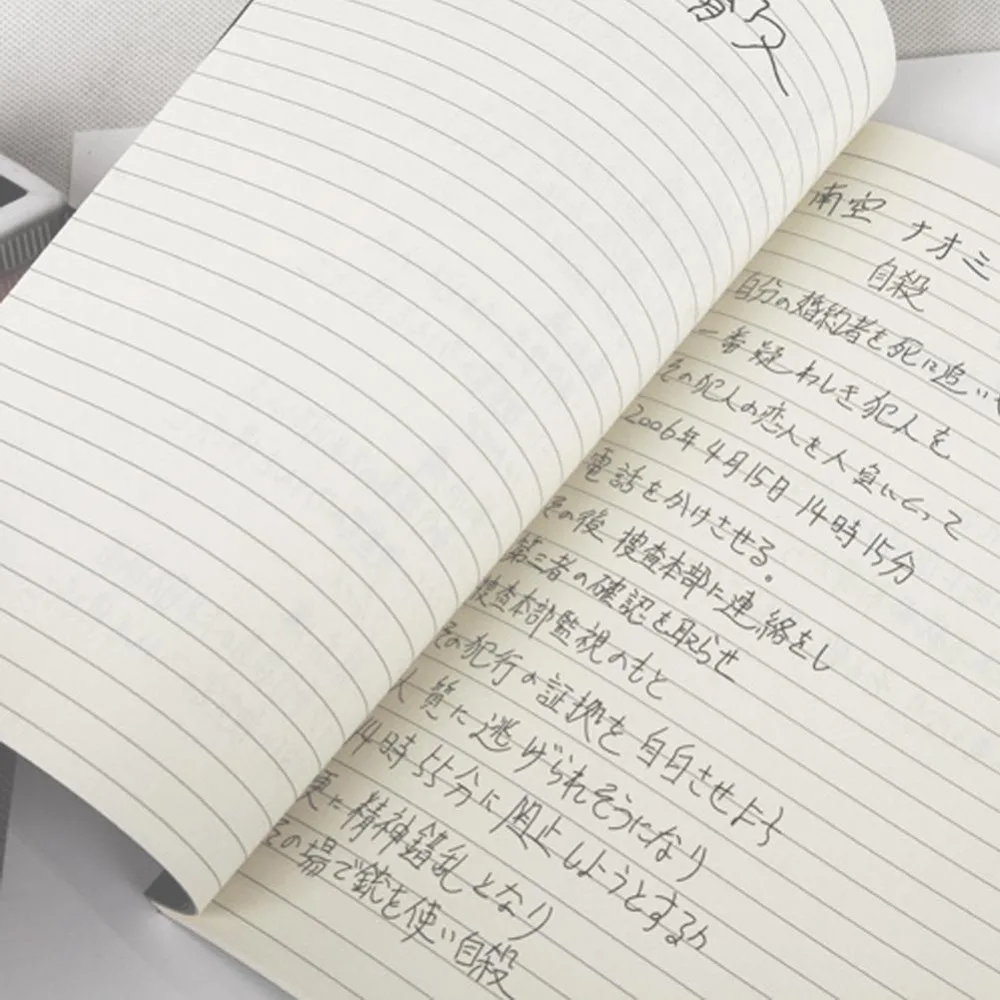 南空 ナオミ
自殺
自分の婚約者を死に追い
一番疑わしき犯人を
その犯人の恋人を人質にとって
2006年4月15日 14時15分
電話をかけさせる。
その後 捜査本部に連絡をし
第三者の確認を取らせ
捜査本部監視のもと
その犯行の証拠を自白させよう
人質に逃げられそうになり
4時55分に阻止しようとするが
更に精神錯乱となり
その場で銃を使い自殺